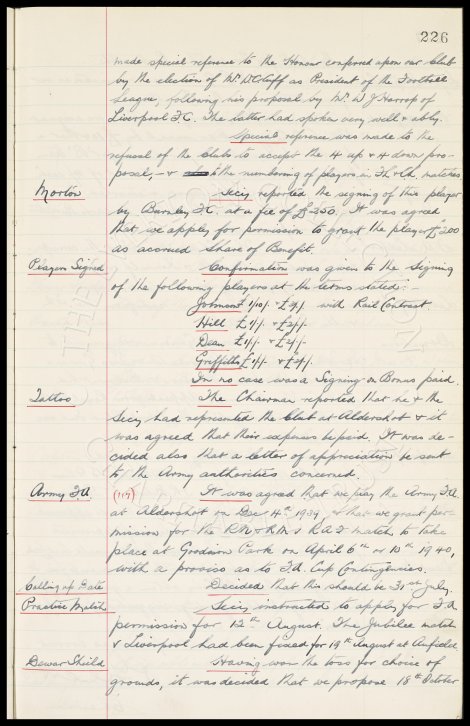 226
made special reference to the Honour conferred upon our Club
by the election of Mr. W.C. Cuff as President of the Football
League, following his proposal by Mr. W J Harrop of
Liverpool F.C. The latter had spoken very well & ably.
Special reference was made to the
refusal of the Clubs to accept the 4 up & 4 down pro-
posal, – & to the numbering of players in the matches
Morton Secy reported the signing of this player
by Burnley F.C. at a fee of £250. It was agreed
that we apply for permission to grant the player £200
as accrued Share of Benefit.
Players Signed Confirmation was given to the Signing
of the following players at the terms stated:-
with Rail Contract
Hill £1/1/- & £2/1/-
Dean £1/1/- & £2/1/-
Griffiths £1/1/- & £2/1/-
In no case was a Signing on Bonus paid.
Tattoo The Chairman reported that he & the
Secy had represented the Club at Aldershot & it
was agreed that their expenses be paid. It was de-
cided also that a letter of appreciation be sent
to the Army authorities concerned.
Army F.A. It was agreed that we play the Army F.A.
at Aldershot on Dec 4th 1939, & that we grant per-
mission for the R.N & R.M. v R.A.F match to take
place at Goodison Park on April 6th or 13th 1940,
with a proviso as to F.A Cup Contingencies.
Calling up Date Decided that this should be 31st July.
Practice Match Secy instructed to apply for F.A
permission for 12th August. The Jubilee match
v Liverpool had been fixed for 19th August at Anfield.
Dewar Shield Having won the toss for choice of
grounds, it was decided that we propose 18th October